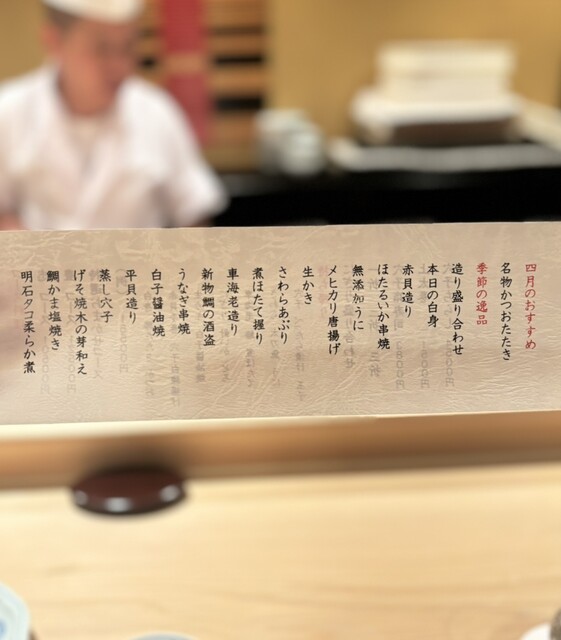 四月のおすすめ
名物かつおたたき
季節の逸品
造り盛り合わせ
本日の白身
赤貝造り
ほたるいか串焼
無添加うに
メヒカリ唐揚げ
生かき
さわらあぶり
煮ほたて握り
車海老造り
新物鯛の酒盗
うなぎ串焼
白子醤油焼
平貝造り
蒸し穴子
げそ焼木の芽和え
鯛かま塩焼き
明石タコ柔らか煮